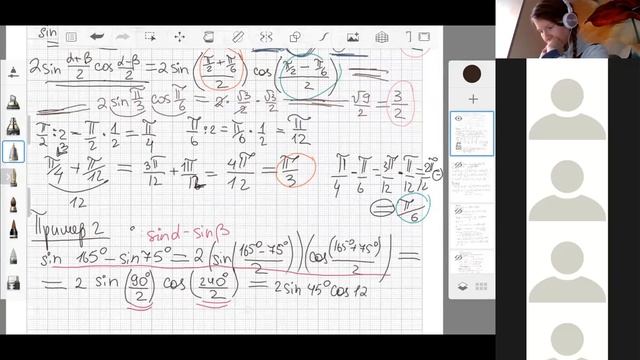 sin
2sin α+β/2 cos α-β/2 = 2 sin (π/2 + π/6 / 2) cos (π/2 - π/6 / 2)
2 sin π/3 cos π/6 = 2 · √3/2 · √3/2 = √9/2 = 3/2
π/2 : 2 = π/2 · 1/2 = π/4 π/6 : 2 = π/6 · 1/2 = π/12
π/4 + π/12 = 3π/12 + 1π/12 = 4π/12 = π/3 π/4 - π/6 = 3π/12 - π/12 = 2π/12 =
12 = π/6
Пример 2 sinα - sinβ
sin 165° - sin 75° = 2 (sin (165° - 75° / 2)) (cos (165° + 75° / 2)) =
= 2 sin (90°/2) cos (240°/2) = 2 sin 45° cos 12